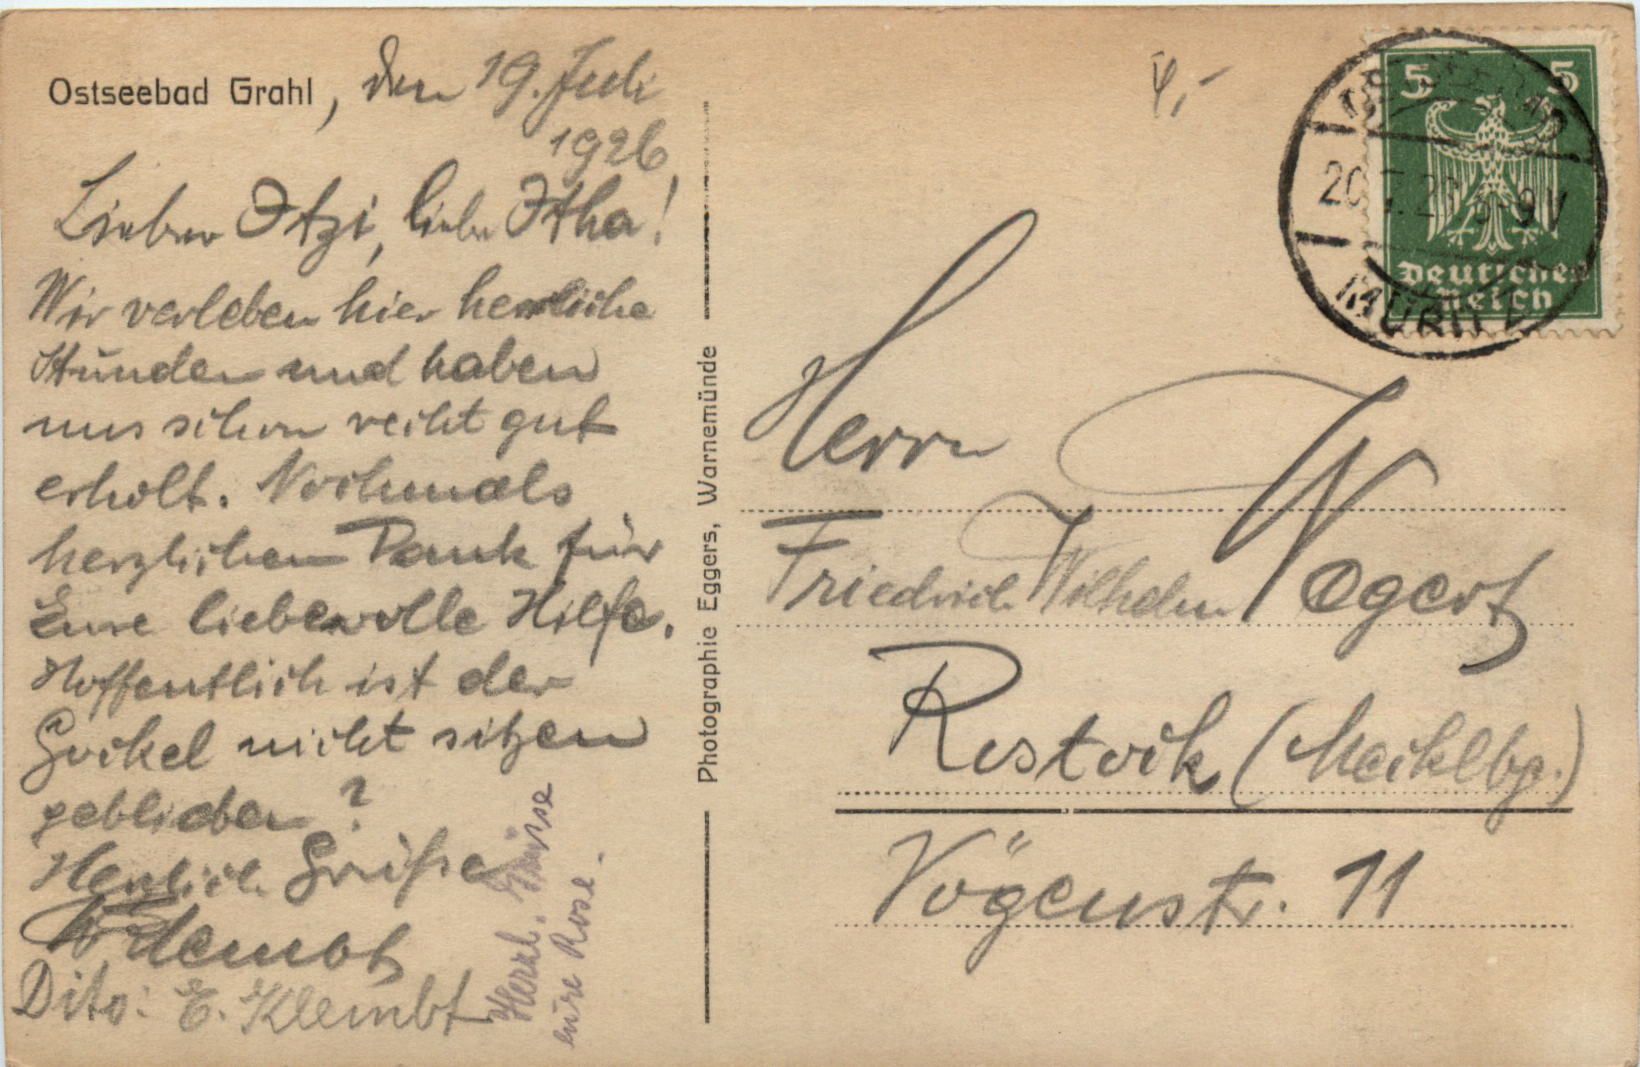 Ostseebad Grahl, den 19. Juli
1926
Lieber Itzi, liebe Itha!
Wir verleben hier herrliche
Stunden und haben
uns schon recht gut
erholt. Nochmals
herzlichen Dank für
Eure liebevolle Hilfe.
Hoffentlich ist der
Gockel nicht sitzen
geblieben?
Herzlich Grüße
Dito: E. Klembt
Herzl. Grüsse
eure Rose.
Photographie Eggers, Warnemünde
4,-
5 5
Deutsches
Reich
OSTSEEBAD
20.7.26 8-9V
MÜRITZ
Herrn
Friedrich Wilhelm Wegert
Rostock (Mecklbg.)
Vögenstr. 11